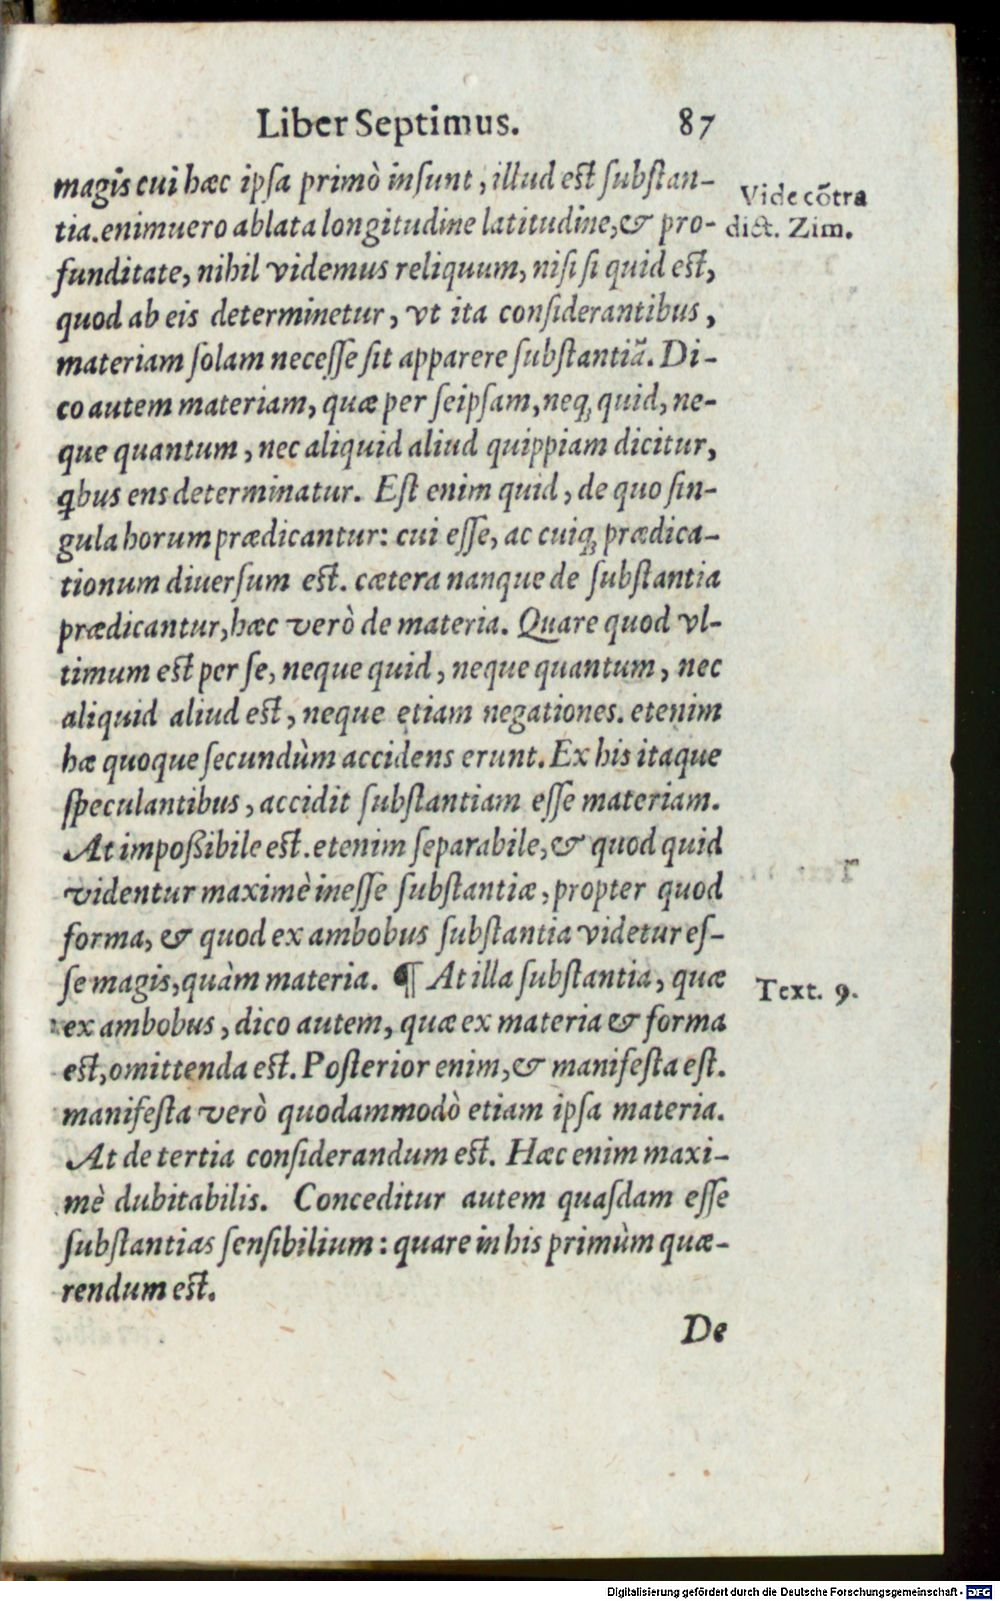 Liber Septimus. 87
magis cui hæc ipſa primò inſunt, illud est ſubſtan-
Vide cõtra
tia. enimuero ablata longitudine latitudine, & pro-
dict. Zim.
funditate, nihil videmus reliquum, niſi ſi quid est,
quod ab eis determinetur, vt ita conſiderantibus,
materiam ſolam neceſſe ſit apparere ſubſtantiã. Di-
co autem materiam, quæ per ſeipſam, neq; quid, ne-
que quantum, nec aliquid aliud quippiam dicitur,
q̃bus ens determinatur. Eſt enim quid, de quo ſin-
gula horum prædicantur: cui eſſe, ac cuiq; prædica-
tionum diuerſum est. cætera nanque de ſubſtantia
prædicantur, hæc verò de materia. Quare quod vl-
timum est per ſe, neque quid, neque quantum, nec
aliquid aliud est, neque etiam negationes. etenim
hæ quoque ſecundùm accidens erunt. Ex his itaque
ſpeculantibus, accidit ſubſtantiam eſſe materiam.
At impoßibile est. etenim ſeparabile, & quod quid
videntur maximè ineſſe ſubſtantiæ, propter quod
forma, & quod ex ambobus ſubſtantia videtur eſ-
ſe magis, quàm materia. ¶ At illa ſubſtantia, quæ
Text. 9.
ex ambobus, dico autem, quæ ex materia & forma
est, omittenda est. Poſterior enim, & manifeſta eſt.
manifeſta verò quodammodò etiam ipſa materia.
At de tertia conſiderandum est. Hæc enim maxi-
mè dubitabilis. Conceditur autem quaſdam eſſe
ſubſtantias ſenſibilium: quare in his primùm quæ-
rendum est.
De
Digitalisierung gefördert durch die Deutsche Forschungsgemeinschaft - DFG